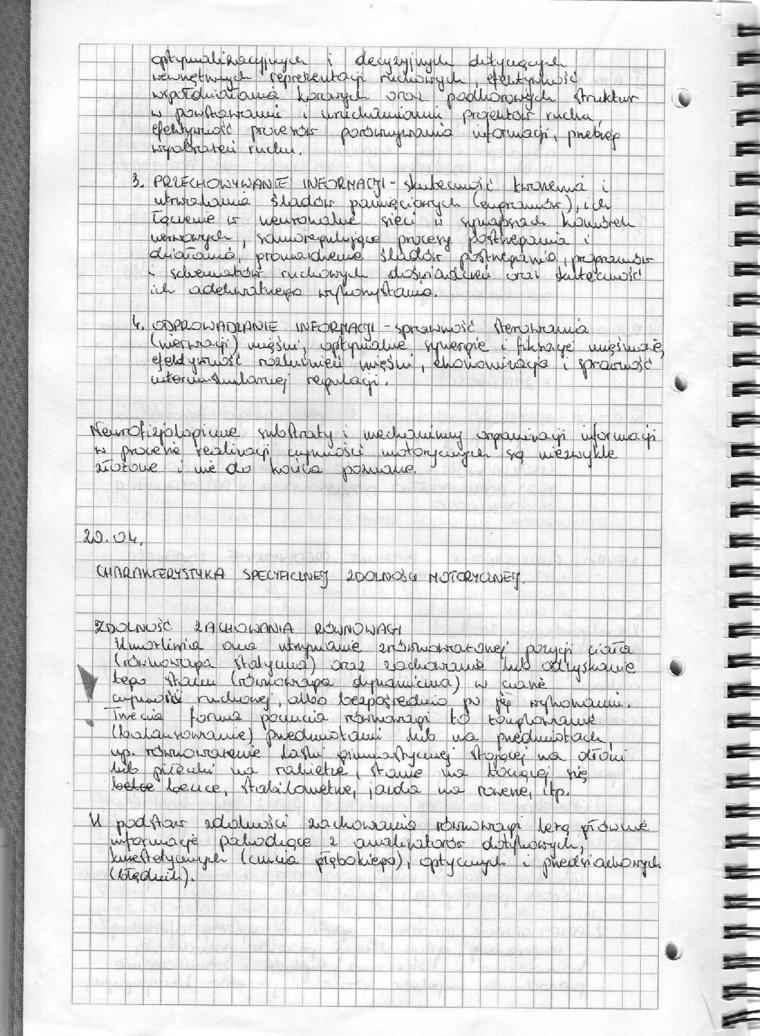 optymalizacyjnych i decyzyjnych dotyczących
wewnętrznych reprezentacji ruchowych, efektywność
współdziałania korowych oraz podkorowych struktur
w powstawaniu i uruchamianiu projektów ruchu,
efektywność procesów porównywania informacji, przebieg
wyobrażeń ruchu.
3. PRZECHOWYWANIE INFORMACJI - skuteczność tworzenia i
utrwalania śladów pamięciowych (engramów), ich
łączenie w neuronalne sieci w synapsach komórek
nerwowych, samoregulujące procesy postrzegania i
działania, gromadzenie śladów postrzegania, programów
i schematów ruchowych doświadczeń oraz skuteczność
ich adekwatnego wykorzystania.
4. ODPROWADZANIE INFORMACJI - sprawność sterowania
(inerwacji) mięśni, optymalne synergie i fiksacje mięśniowe,
efektywność rozluźnień mięśni, ekonomizacja i sprawność
intermuskularnej regulacji.
Neurofizjologiczne substraty i mechanizmy organizacji informacji
w procesie realizacji czynności motorycznych są niezwykle
złożone i nie do końca poznane.
20.04.
CHARAKTERYSTYKA SPECYFICZNEJ ZDOLNOŚCI MOTORYCZNEJ.
ZDOLNOŚĆ ZACHOWANIA RÓWNOWAGI
Umożliwia ona utrzymanie zrównoważonej pozycji ciała
(równowaga statyczna) oraz zachowanie lub odzyskanie
tego stanu (równowaga dynamiczna) w czasie
czynności ruchowej, albo bezpośrednio po jej wykonaniu.
! Trzecia forma poczucia równowagi to
(balansowanie) przedmiotami lub na przedmiotach,
np. równoważenie laski gimnastycznej stojącej na dłoni
lub piłeczki na rakietce, stanie na toczącej się
belce beczce, stabilometrze, jazda na rowerze, itp.
U podstaw zdolności zachowania równowagi leżą głównie
informacje pochodzące z analizatorów dotykowych,
kinestetycznych (czucia głębokiego), optycznych i przedsionkowych
(błędnik).